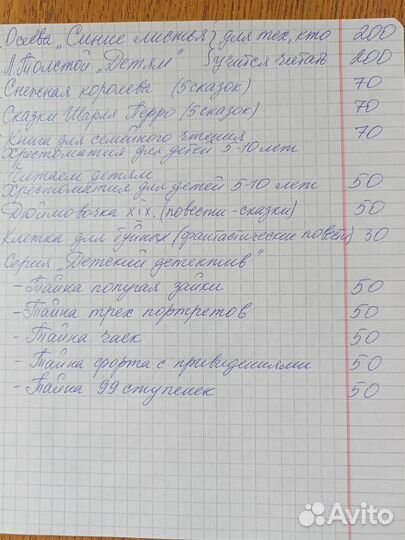 Осеева „Синие листья" } для тех, кто 200
Л. Толстой „Детям" } учится читать 200
Снежная королева (5 сказок) 70
Сказки Шарля Перро (5 сказок) 70
Книга для семейного чтения 70
Христоматия для детей 5-10 лет
Читаем детям
Христоматия для детей 5-10 лет 50
Дюймовочка XIX. (повести - сказки) 50
Клетка для буйных (фантастические повести) 30
Серия „Детский детектив"
- Тайна попугая зайки 50
- Тайна трех портретов 50
- Тайна часк 50
- Тайна форта с привидениями 50
- Тайна 99 ступенек 50
Avito